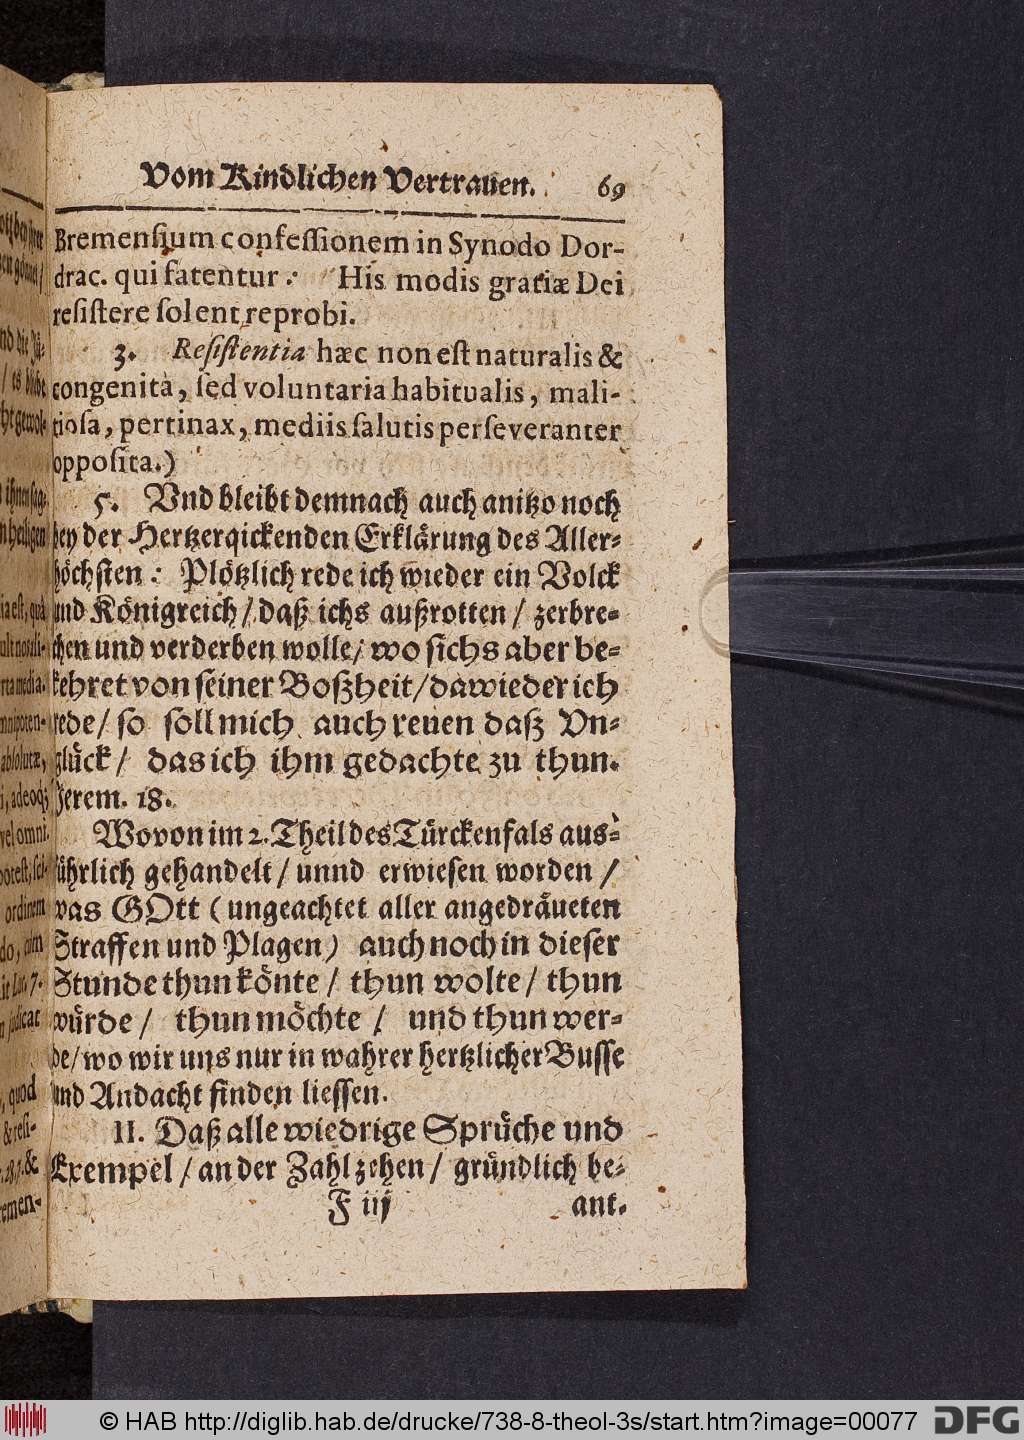 Vom Kindlichen Vertrauen. 69
Bremensium confessionem in Synodo Dor-
drac. qui fatentur: His modis gratiæ Dei
resistere solent reprobi.
3. Resistentia hæc non est naturalis &
congenita, sed voluntaria habitualis, mali-
tiosa, pertinax, mediis salutis perseveranter
opposita.)
5. Vnd bleibt demnach auch anitzo noch
bey der Hertzerqickenden Erklärung des Aller-
höchsten: Plötzlich rede ich wieder ein Volck
und Königreich/ daß ichs außrotten/ zerbre-
chen und verderben wolle/ wo sichs aber be-
kehret von seiner Boßheit/ dawieder ich
rede/ so soll mich auch reuen daß Vn-
glück/ das ich ihm gedachte zu thun.
Jerem. 18.
Wovon im 2. Theil des Türckenfals aus-
führlich gehandelt/ unnd erwiesen worden/
was GOtt (ungeachtet aller angedräueten
Straffen und Plagen) auch noch in dieser
Stunde thun könte/ thun wolte/ thun
würde/ thun möchte/ und thun wer-
de/ wo wir uns nur in wahrer hertzlicher Busse
und Andacht finden liessen.
II. Daß alle wiedrige Sprüche und
Exempel/ an der Zahl zehen/ gründlich be-
F iij ant.
© HAB http://diglib.hab.de/drucke/738-8-theol-3s/start.htm?image=00077
DFG